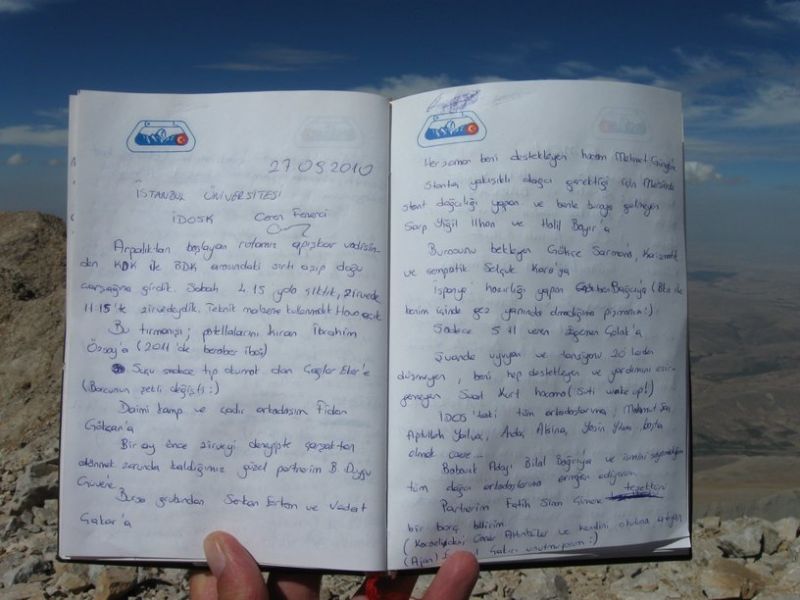 27 09 2010
İSTANBUL ÜNİVERSİTESİ
İDOSK Ceren Fenerci
Arpalıktan başlayan rotamız apışkar vadisin-
den KDK ile BDK arasındaki sırtı aşıp doğu
çarşağına girdik. Sabah 4.15 yola çıktık, zirvede
11:15'te zirvedeydik. Teknik malzeme kullanmadık Hava açık
Bu tırmanışı; patillalarını kıran İbrahim
Özsoy'a (2011'de beraber
Suçu sadece tıp okumak olan Çağlar Eker'e
(Borcunun şekli değişti :)
Daimi kamp ve çadır arkadaşım Fidan
Gökçen'a
Bir ay önce zirveyi deneyipte çarşaktan
dönmek zorunda kaldığımız güzel partnerim B. Duygu
Bursa grubundan Serkan Ertan ve Vedat
Çakar'a
Her zaman beni destekleyen hocam Mehmet
Stantta yakışıklı dağcı gerektiği için
stant dağcılığı yapan ve benle buraya gelmeyen
Sarp Yiğit İlhan ve Halil Bayır'a
Burcunu bekleyen Gökçe Sarman'a, Karizmatik
ve sempatik Selçuk Kara'ya
İspanya hazırlığı yapan Bağcı'ya (Biz ile
benim içinde gez yanında olmadığıma pişmanım :)
Sadece 5.11 veren Çolak'a
Şuanda uyuyan ve tansiyonu 20 lerden
düşmeyen, beni hep destekleyen ve yardımını esir-
gemeyen Suat Kurt hocama (Suti wake up!)
İDOS'taki tüm arkadaşlarıma, Mahmut
Aptullah Yalvaç, Arda Alkına, Yasin başta
olmak üzere...
Babayit Adayı Bilal Bağcı'ya ve ismini sayamadığım
tüm dağcı arkadaşlarıma armağan ediyorum.
Partnerim Fatih Sinan teşekkürü
bir borç bilirim
ve kendini okuluna
(Ajan) unutmuyorum :)